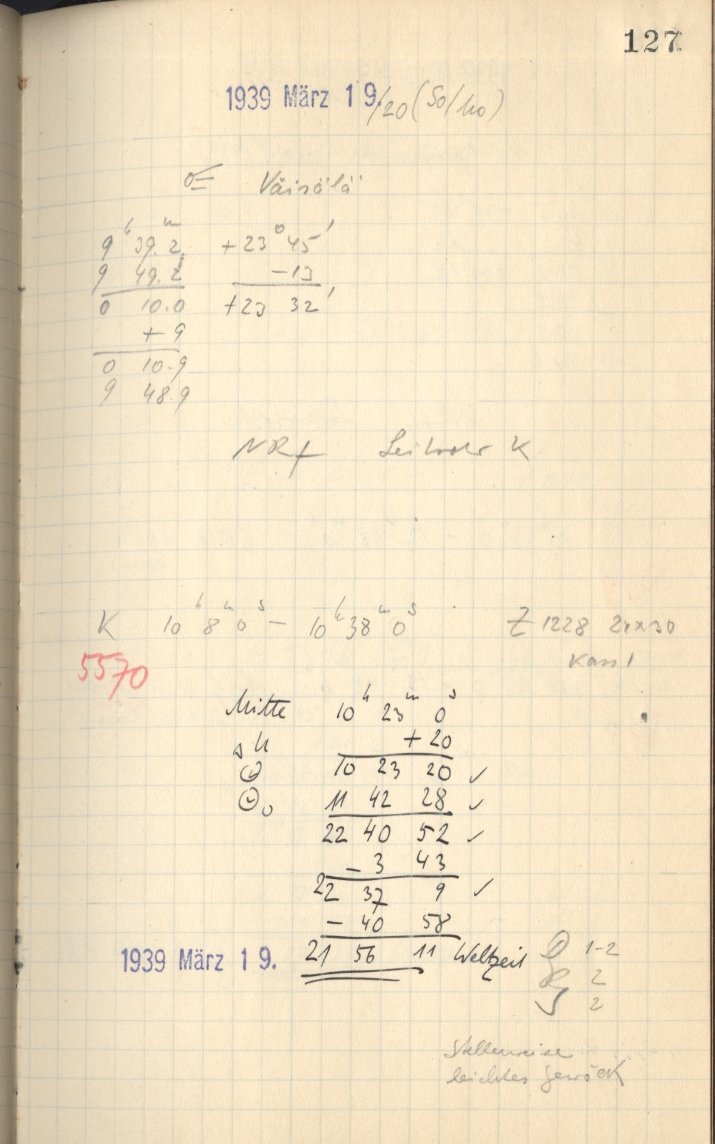 127
1939 März 19./20 (So/Mo)
Väisälä
9ʰ 39.2ᵐ +23° 45′
9 49.2 −13
0 10.0 +23 32′
+ 9
0 10.9
9 48.9
Leitrohr K
K 10ʰ 8ᵐ 0ˢ − 10ʰ 38ᵐ 0ˢ Z 1228 24×30
Kass 1
5570
Mitte 10ʰ 23ᵐ 0ˢ
+ 20
10 23 20 ✓
11 42 28 ✓
22 40 52 ✓
− 3 43
22 37 9 ✓
− 40 58
1939 März 19. 21 56 11 Weltzeit
1-2
2
2
Stellenweise
leichtes Gewölk